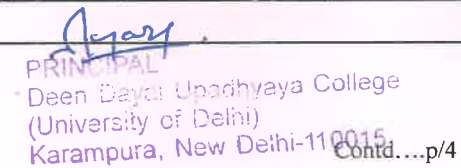 PRINCIPAL
Deen Dayal Upadhyaya College
(University of Delhi)
Karampura, New Delhi-110015
Contd....p/4